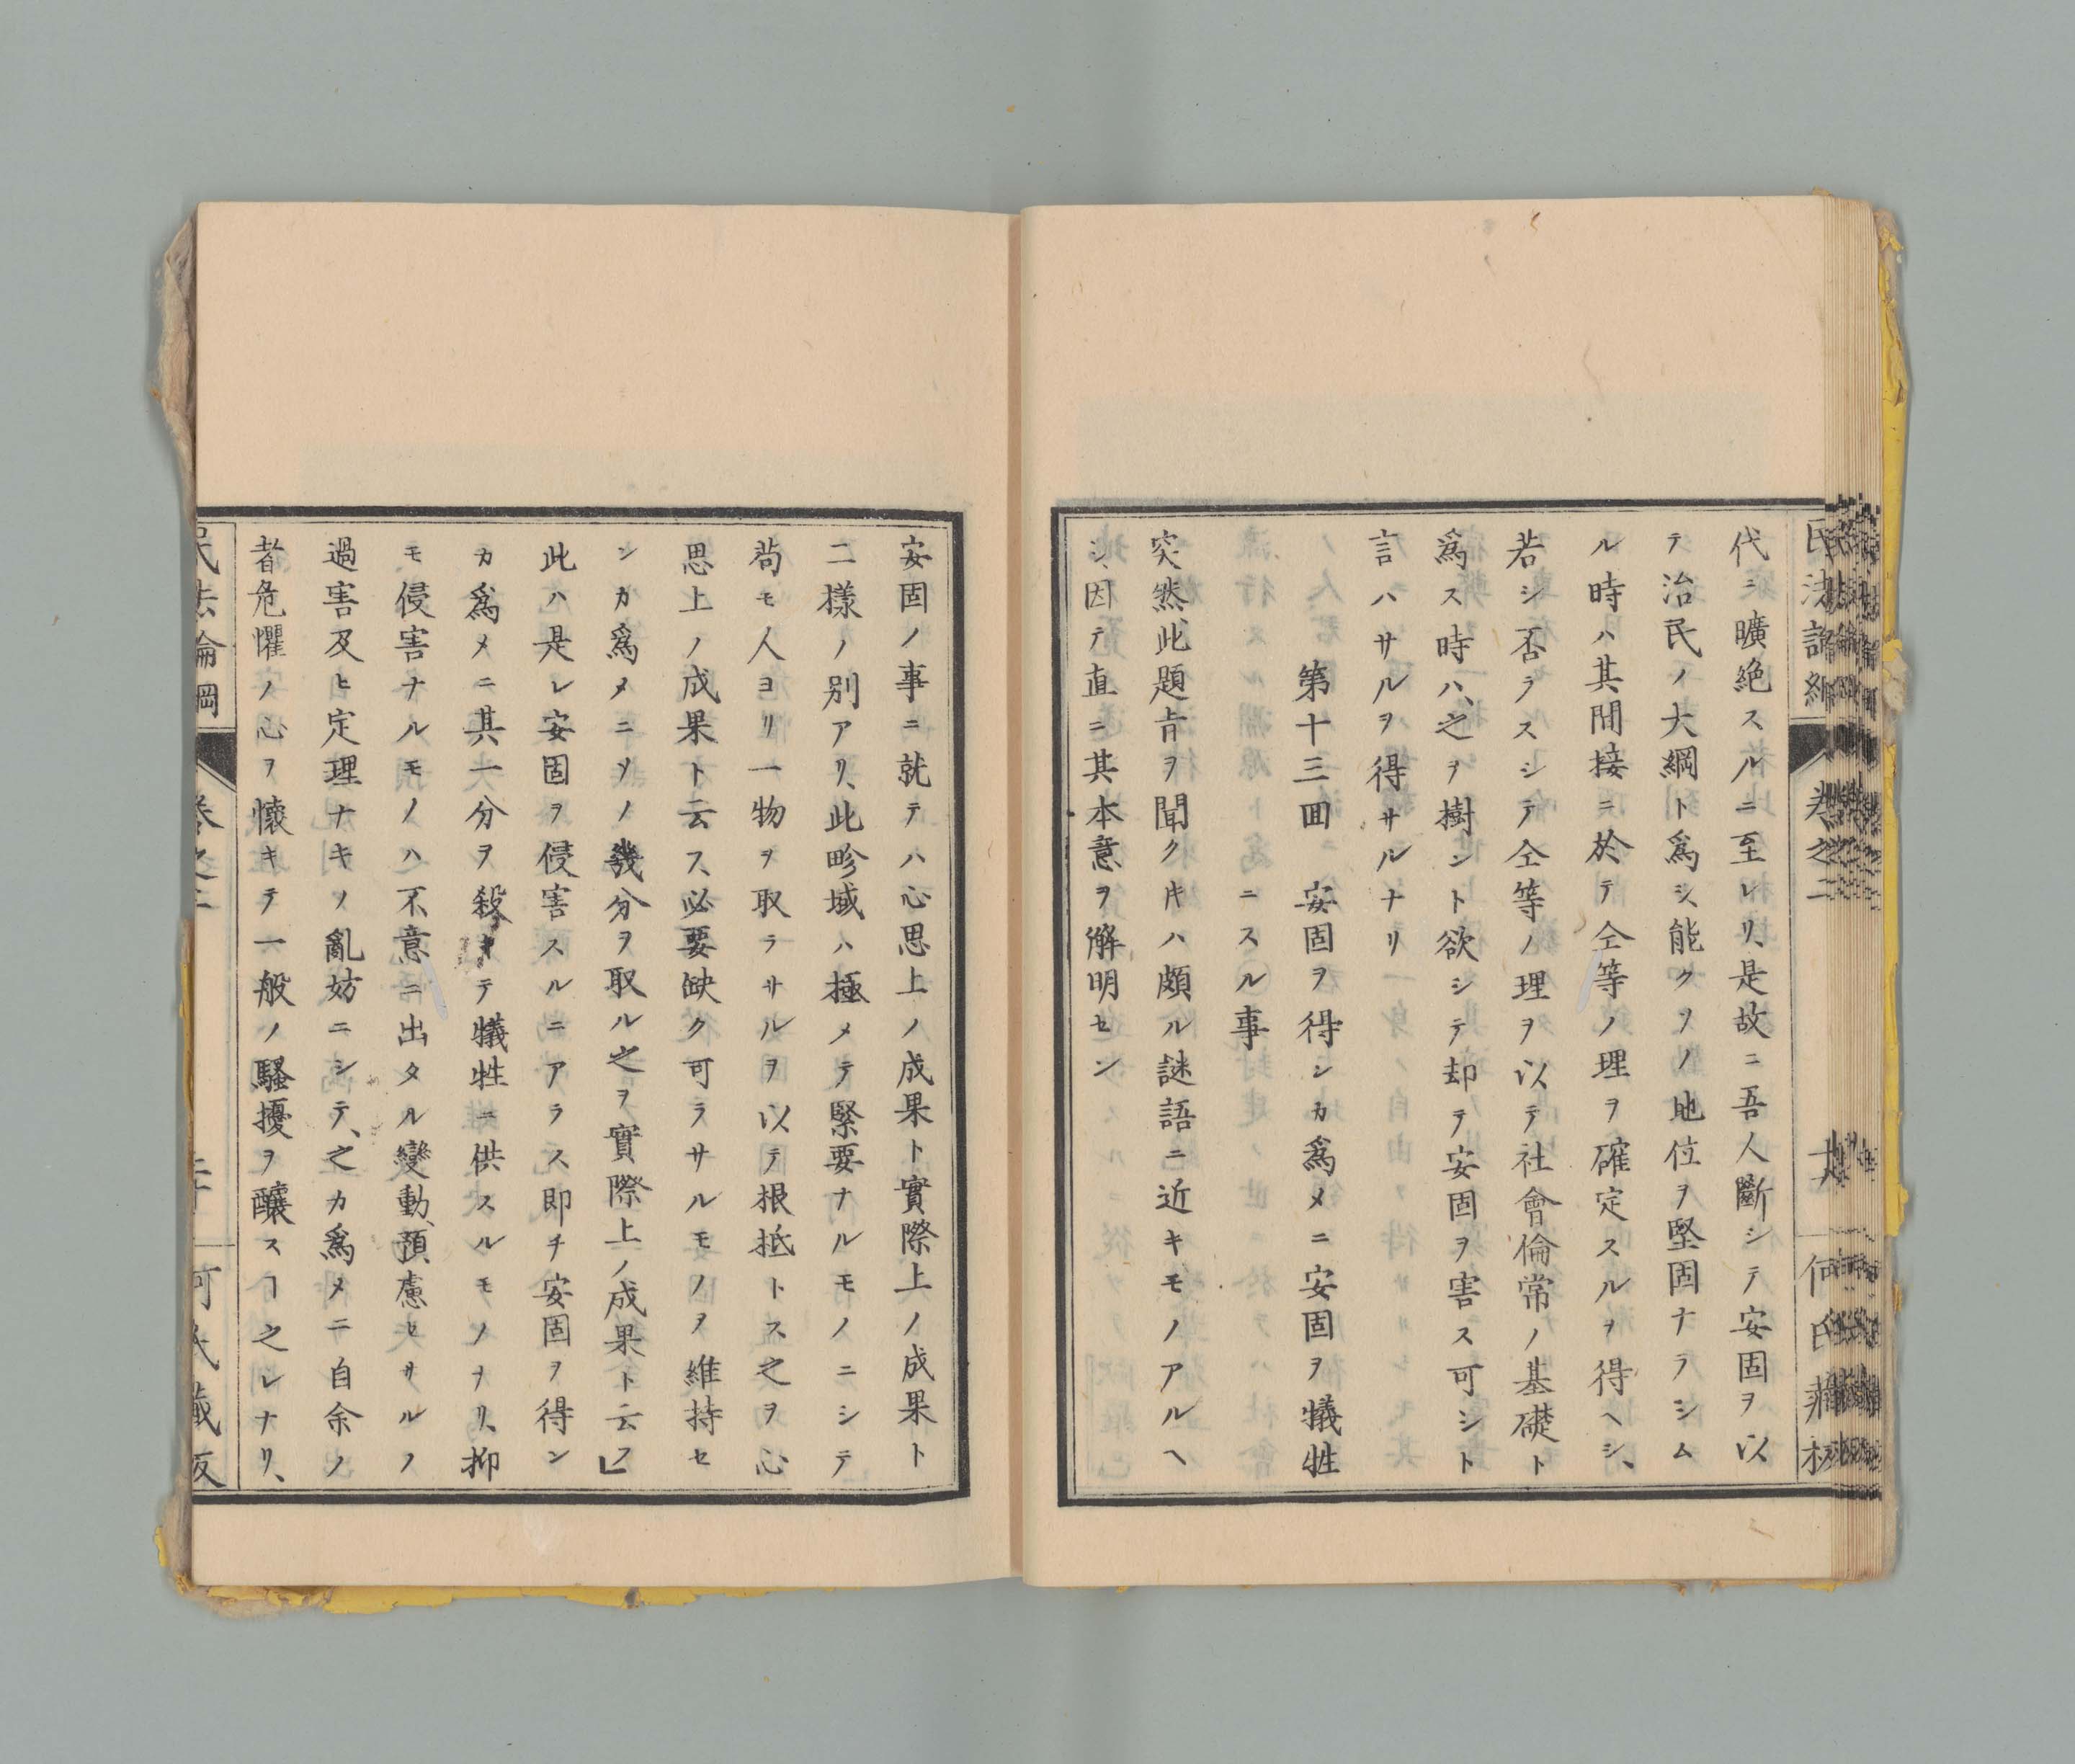 民法論綱 卷之二 何氏藏板
代ニ曠絶スルニ至レリ、是故ニ吾人斷シテ安固ヲ以
テ治民ノ大綱ト爲シ、能クソノ地位ヲ堅固ナラシム
ル時ハ其間接ニ於テ仝等ノ理ヲ確定スルヲ得ヘシ、
若シ否ラスシテ仝等ノ理ヲ以テ社會倫常ノ基礎ト
爲ス時ハ、之ヲ樹ント欲シテ却テ安固ヲ害ス可シト
言ハサルヲ得サルナリ
第十三囬 安固ヲ得ンカ爲メニ安固ヲ犧牲
ニスル事
突然、此題旨ヲ聞クキハ頗ル謎語ニ近キモノアルヘ
シ、因テ直ニ其本意ヲ觧明セン
安固ノ事ニ就テハ心思上ノ成果ト實際上ノ成果ト
二樣ノ別アリ、此畛域ハ極メテ緊要ナルモノニシテ
茍モ人ヨリ一物ヲ取ラサルヲ以テ根抵トス之ヲ心
思上ノ成果ト云フ、必要缺ク可ラサルモノヲ維持セ
ンカ爲メニソノ幾分ヲ取ル之ヲ實際上ノ成果ト云フ
此ハ是レ安固ヲ侵害スルニアラス即チ安固ヲ得ン
カ爲メニ其一分ヲ殺キテ犧牲ニ供スルモノナリ、抑
モ侵害ナルモノハ不意ニ出タル變動、預慮セサルノ
過害及ヒ定理ナキノ亂妨ニシテ、之カ爲メニ自余ノ
者危懼ノ心ヲ懷キテ一般ノ騷擾ヲ釀スヿ之レナリ、
民法論綱 卷之二 二十 何氏藏板